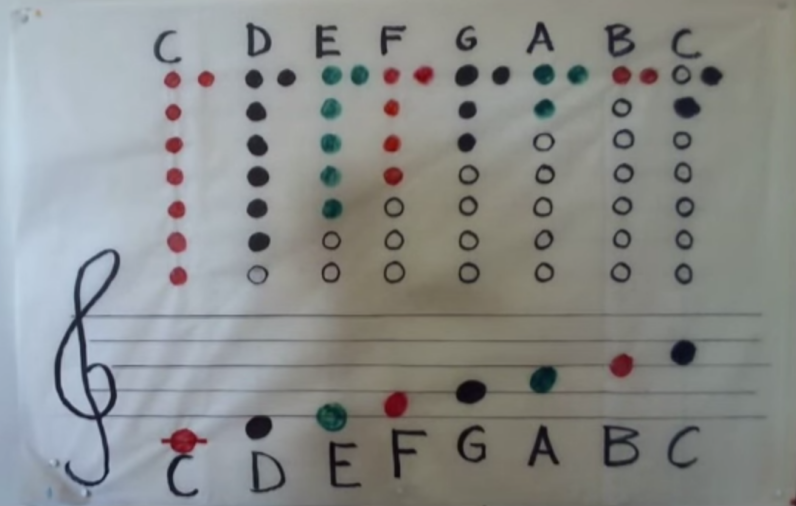 C D E F G A B C
C D E F G A B C